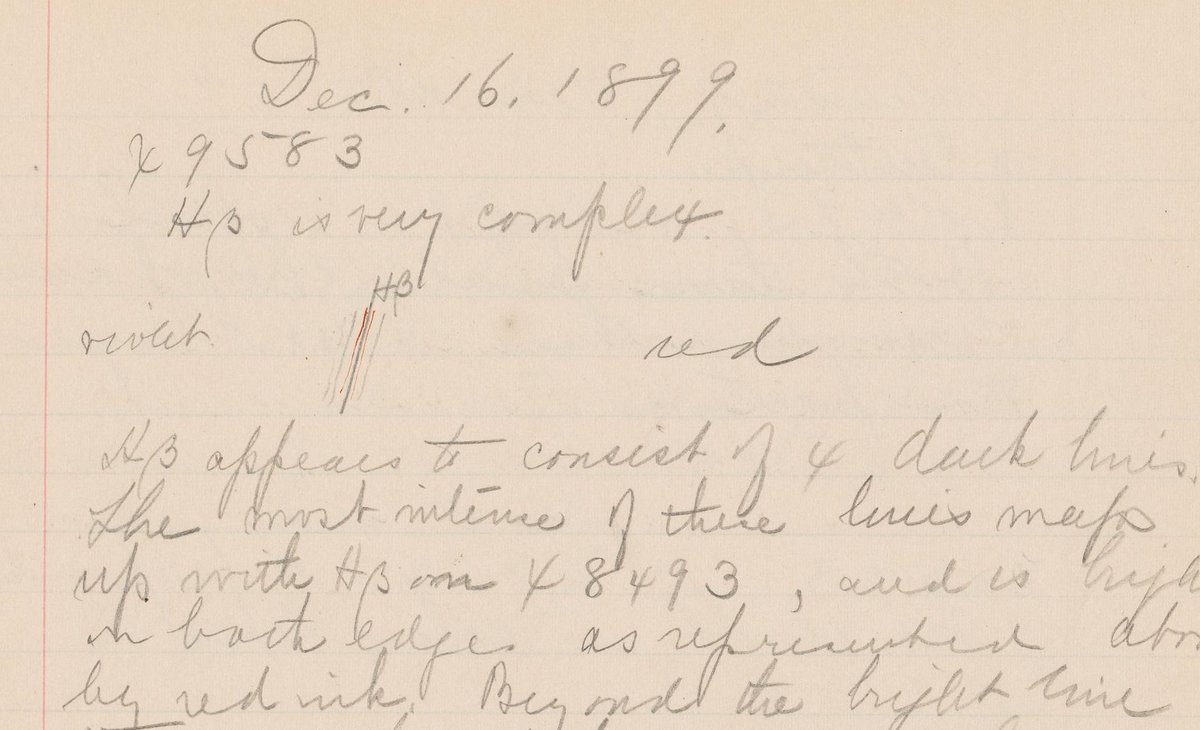 Dec. 16, 1899.
X 9583
Hβ is very complex.
Hβ
violet red
Hβ appears to consist of 4 dark lines.
The most intense of these lines
up with Hβ on X 8493, and is
on both edges as represented
by red ink. Beyond the bright line